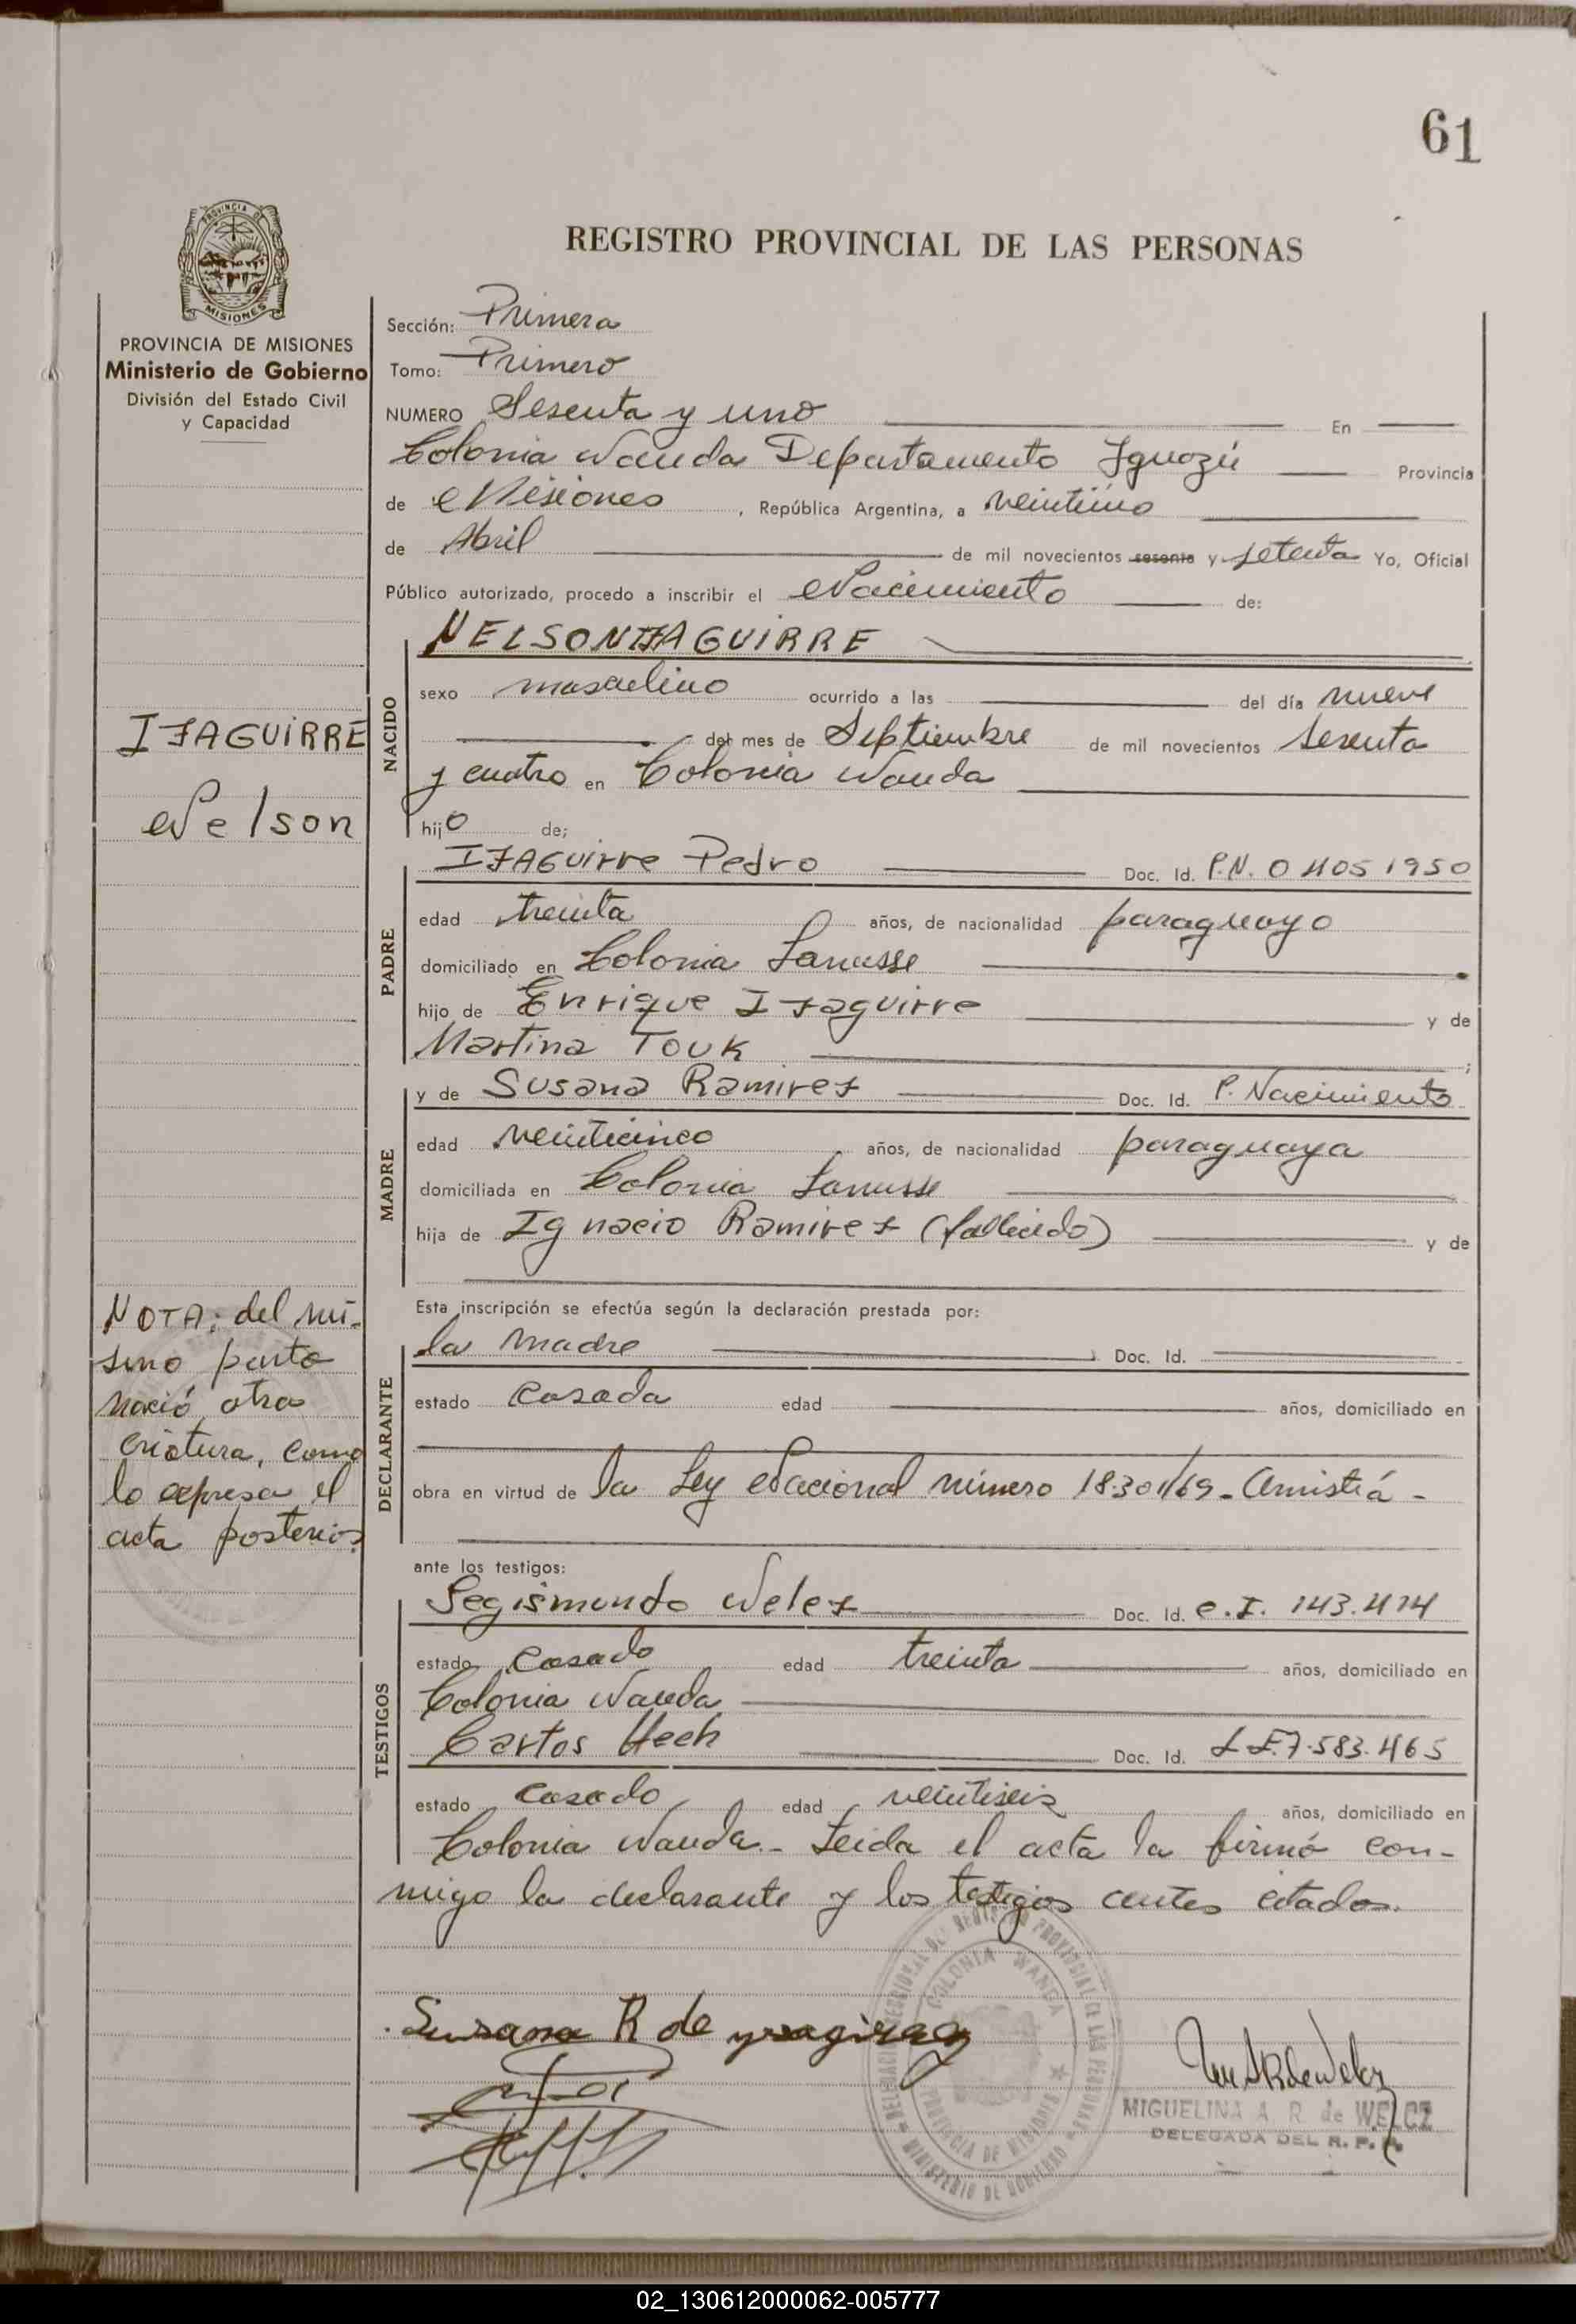 61
REGISTRO PROVINCIAL DE LAS PERSONAS
PROVINCIA DE
MISIONES
PROVINCIA DE MISIONES
Ministerio de Gobierno
División del Estado Civil
y Capacidad
IZAGUIRRE
Nelson
NOTA: del mi-
smo parto
nació otra
criatura, como
lo expresa el
acta posterior.
Sección: Primera
Tomo: Primero
NUMERO Sesenta y uno En
Colonia Wanda Departamento Iguazú Provincia
de Misiones, República Argentina, a veintiuno
de Abril de mil novecientos sesenta y setenta Yo, Oficial
Público autorizado, procedo a inscribir el Nacimiento de:
NELSON IZAGUIRRE
NACIDO
sexo masculino ocurrido a las del día nueve
del mes de Septiembre de mil novecientos sesenta
y cuatro en Colonia Wanda
hijo de;
PADRE
IZAGUIRRE Pedro Doc. Id. P.N. 0 405 1950
edad treinta años, de nacionalidad paraguayo
domiciliado en Colonia Lanusse
hijo de Enrique Izaguirre y de
Martina TOUK ;
MADRE
y de Susana Ramirez Doc. Id. P. Nacimiento
edad veinticinco años, de nacionalidad paraguaya
domiciliada en Colonia Lanusse
hija de Ignacio Ramirez (fallecido) y de
Esta inscripción se efectúa según la declaración prestada por:
DECLARANTE
la madre Doc. Id.
estado casada edad años, domiciliado en
obra en virtud de la Ley Nacional número 18.301/69 - Amnistía -
ante los testigos:
TESTIGOS
Segismundo Welcz Doc. Id. C.I. 143.414
estado casado edad treinta años, domiciliado en
Colonia Wanda
Carlos Hech Doc. Id. L.E. 7.583.465
estado casado edad veintiseis años, domiciliado en
Colonia Wanda.- Leida el acta la firmó con-
migo la declarante y los testigos antes citados.
Susana R de
COLONIA WANDA
PROVINCIA DE MISIONES
MINISTERIO DE GOBIERNO
MIGUELINA A. R. de WELCZ
DELEGADA DEL R. P. P.
02_130612000062-005777